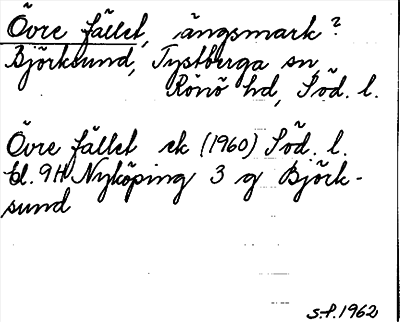 Övre fället, ängsmark?
Björksund, Tystberga sn
Rönö hd, Söd. l.
Övre fället ek (1960) Söd. l.
bl. 9H Nyköping 3 g Björk-
sund
s.f. 1962